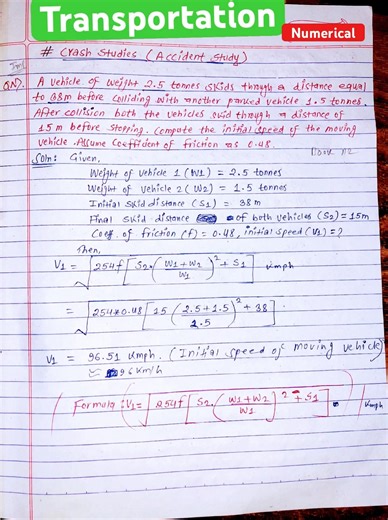 Transportation
Numerical
# Crash Studies (Accident study)
Imp
QN7. A vehicle of weight 2.5 tonnes skids through a distance equal
to 38m before colliding with another parked vehicle 1.5 tonnes.
After collision both the vehicles skid through a distance of
15 m before stopping. Compute the initial speed of the moving
vehicle. Assume coefficient of friction as 0.48.
Soln: Given,
Weight of vehicle 1 (W1) = 2.5 tonnes
Weight of vehicle 2 (W2) = 1.5 tonnes
Initial skid distance (S1) = 38m
Final skid distance of both vehicles (S2) = 15m
Coeff of friction (f) = 0.48, initial speed (V1) = ?
Then,
V1 = √254f[S2.(W1+W2/W1)²+S1] kmph
= √254*0.48[15(2.5+1.5/2.5)²+38]
V1 = 96.51 kmph. (Initial speed of moving vehicle)
≈ 96 km/h
Formula: V1= √254f[S2.(W1+W2/W1)²+S1] kmph